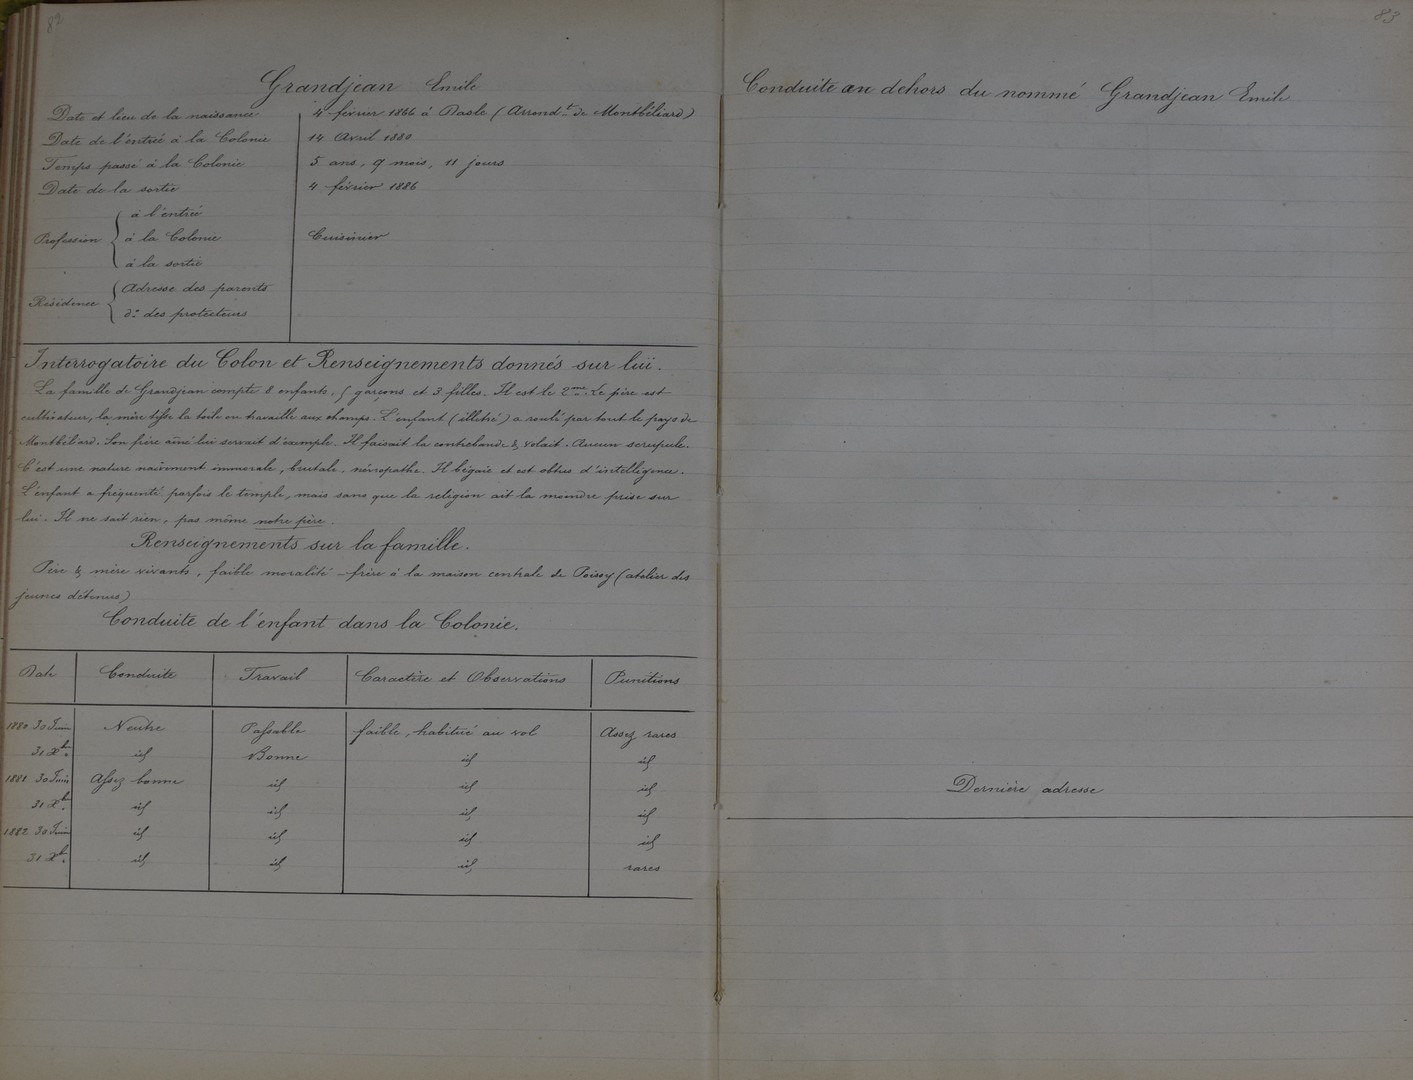 82
Grandjean Emile
Date et lieu de la naissance 4 février 1866 à Dasle (Arrond.t de Montbéliard)
Date de l'entrée à la Colonie 14 Avril 1880
Temps passé à la Colonie 5 ans, 9 mois, 11 jours
Date de la sortie 4 février 1886
Profession à l'entrée
à la Colonie Cuisinier
à la sortie
Résidence Adresse des parents
d.o des protecteurs
Interrogatoire du Colon et Renseignements donnés sur lui.
La famille de Grandjean compte 8 enfants. 5 garçons et 3 filles. Il est le 2me. Le père est
cultivateur, la mère tisse la toile ou travaille aux champs. L'enfant (illettré) a roulé par tout le pays de
Montbéliard. Son frère aîné lui servait d'exemple. Il faisait la contrebande & volait. Aucun scrupule.
C'est une nature naïvement immorale, brutale, névropathe. Il bégaie et est obtus d'intelligence.
L'enfant a fréquenté parfois le temple, mais sans que la religion ait la moindre prise sur
lui. Il ne sait rien, pas même notre père.
Renseignements sur la famille.
Père & mère vivants, faible moralité - frère à la maison centrale de Poissy (atelier des
jeunes détenus)
Conduite de l'enfant dans la Colonie.
Date Conduite Travail Caractère et Observations Punitions
1880 30 Juin Neutre Passable faible, habitué au vol Assez rares
31 Xb. id Bonne id id
1881 30 Juin Assez bonne id id id
31 Xb. id id id id
1882 30 Juin id id id id
31 Xb. id id id rares
83
Conduite au dehors du nommé Grandjean Emile
Dernière adresse